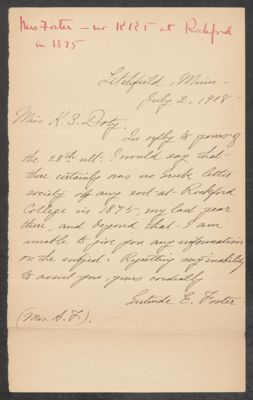 Mrs Foster – no KRS at Rockford
in 1875
Litchfield, Minn –
July 2, 1908
Miss K. S. Doty.
In reply to yours of
the 28th ult. I would say that
there certainly was no Greek letter
society of any sort at Rockford
College in 1875, my last year
there, and beyond that I am
unable to give you any information
on the subject. Regretting my inability
to assist you, yours cordially.
Gertrude E. Foster
(Mrs. A. F.).